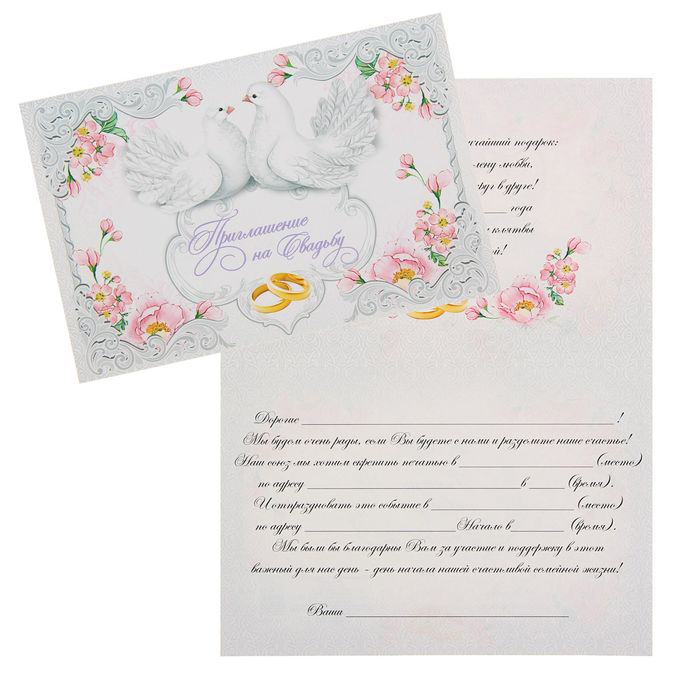 Приглашение
на Свадьбу
подарок:
любви.
в друге!
________ года
клятвы
Дорогие ________________________ !
Мы будем очень рады, если Вы будете с нами и разделите наше счастье!
Наш союз мы хотим скрепить печатью в ____________ (место)
по адресу ____________________ в ______ (время).
И отпраздновать это событие в ______________ (место)
по адресу ______________ Начало в ______ (время).
Мы были бы благодарны Вам за участие и поддержку в этот
важный для нас день - день начала нашей счастливой семейной жизни!
Ваши ____________________